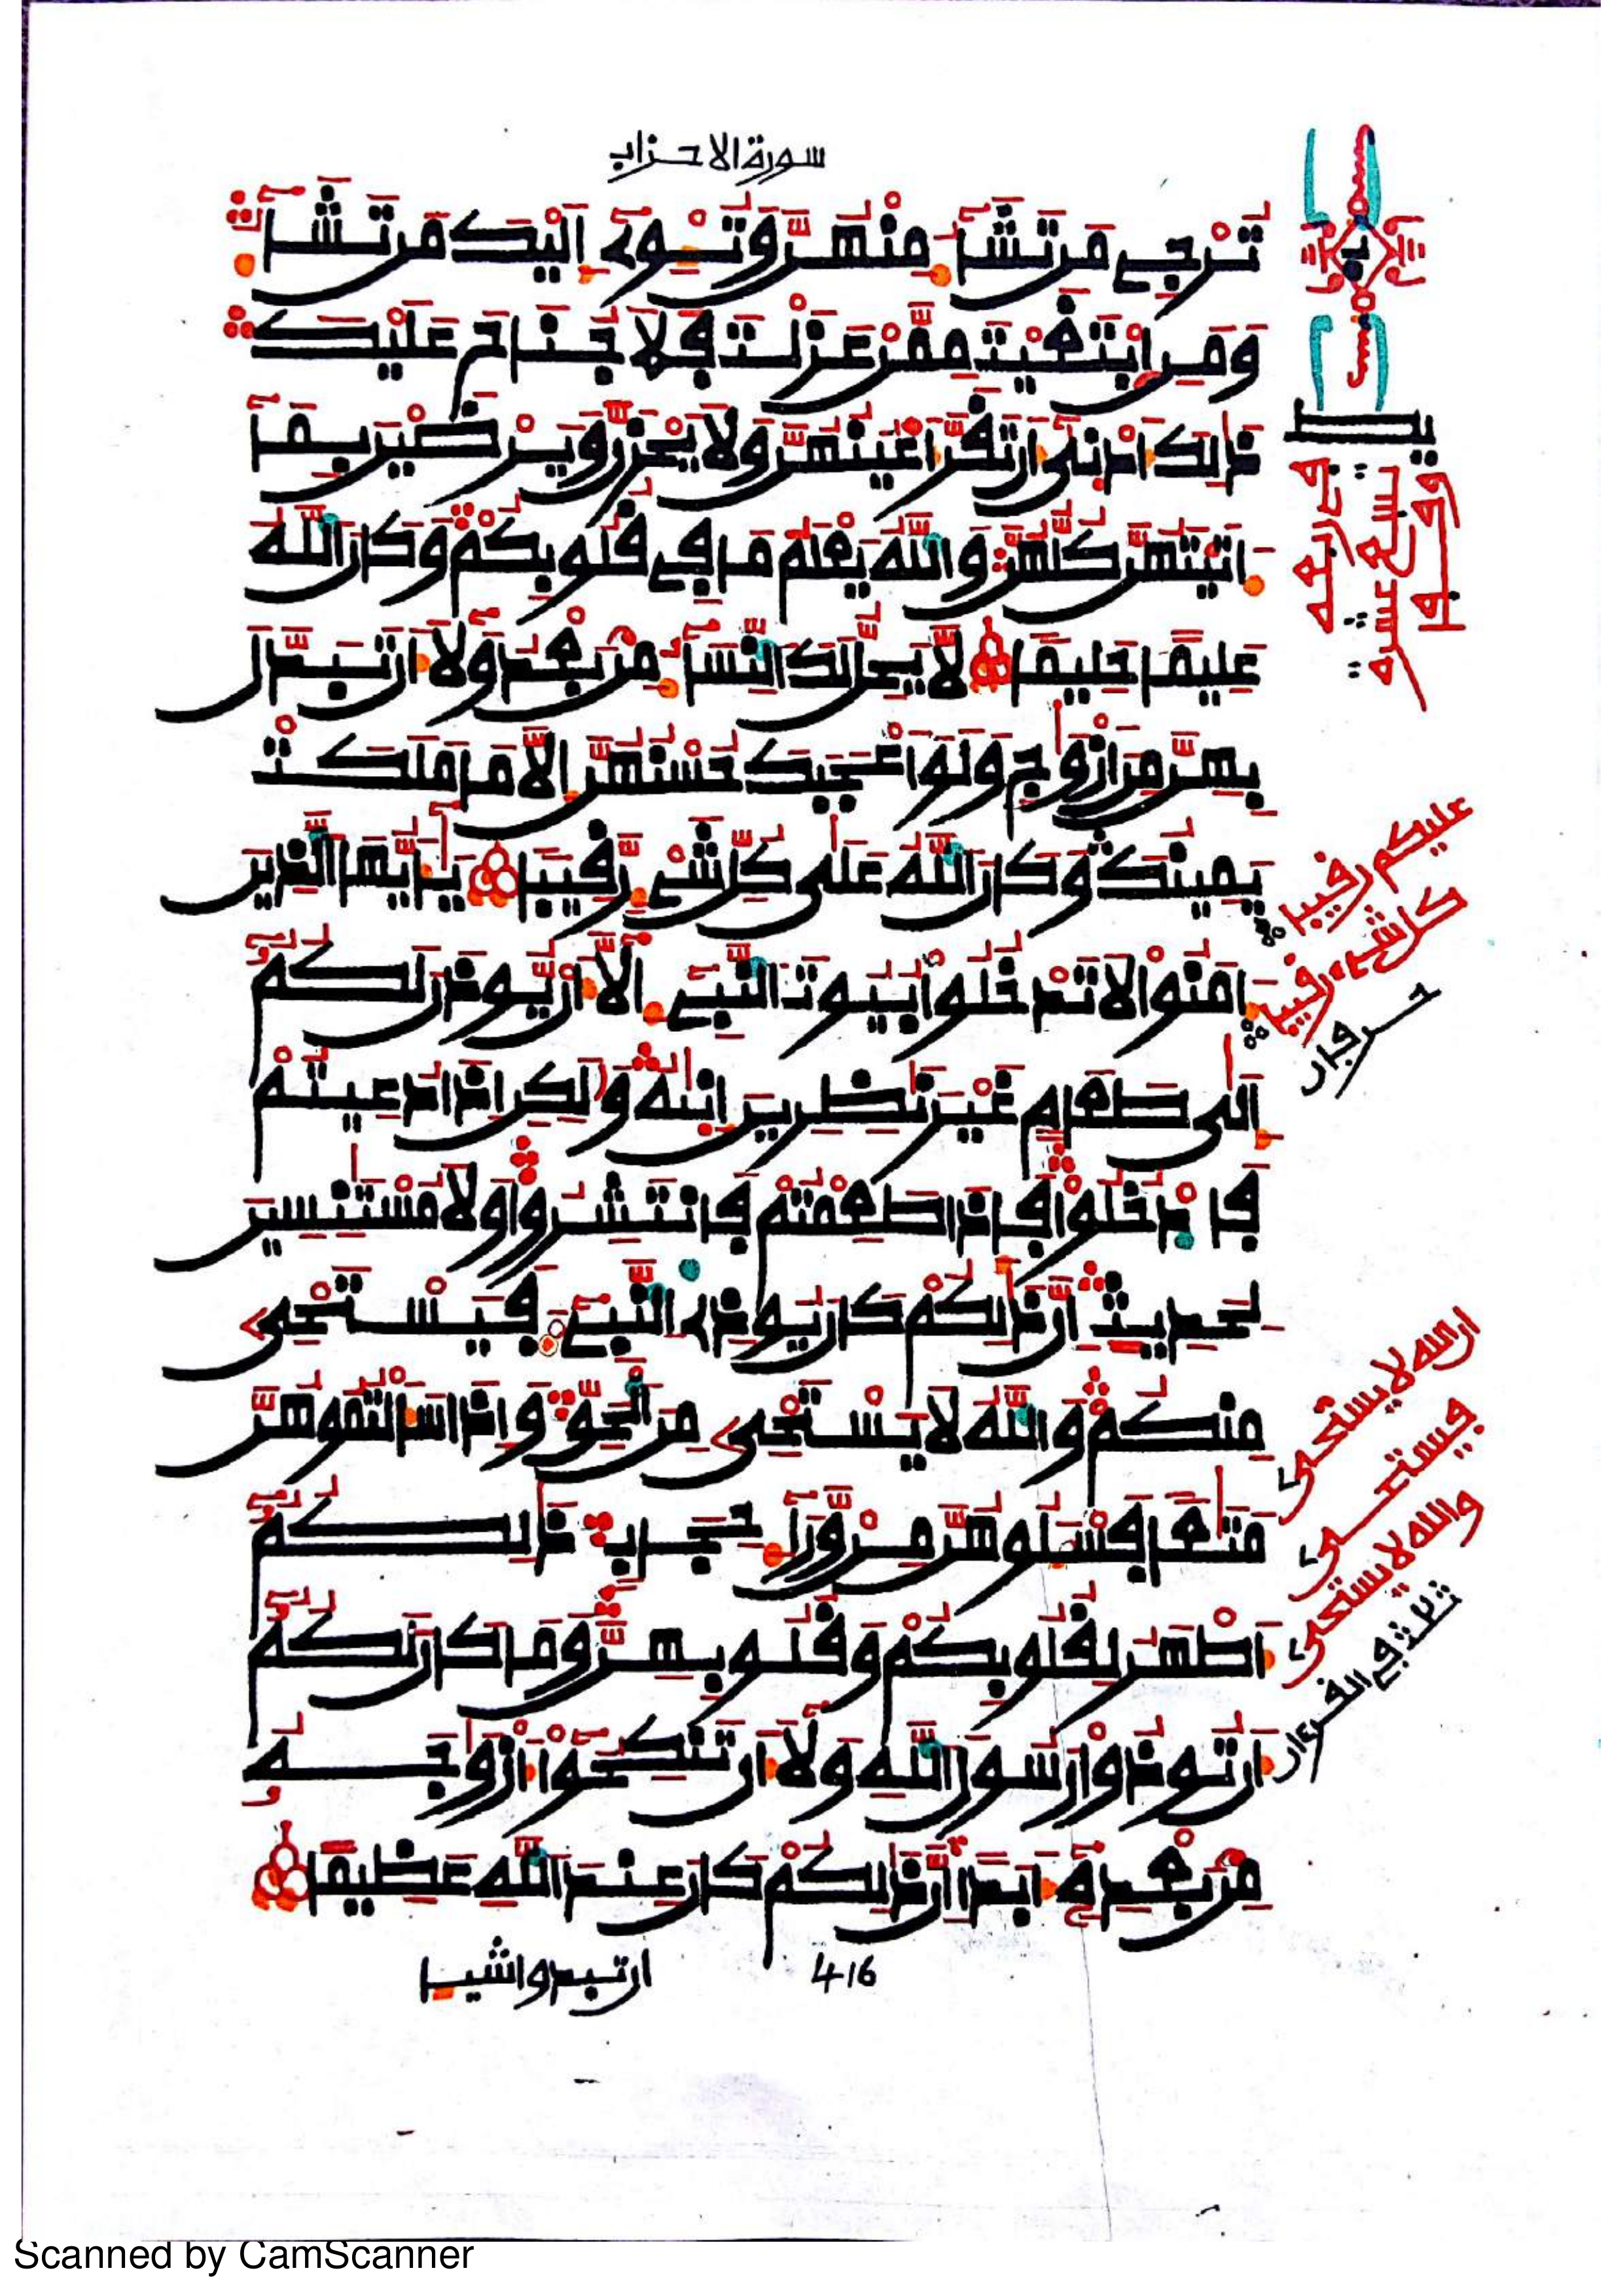 سورة الاحزاب
تُرْجِے مَن تَشَآءُ مِنْهُنَّ وَتُـْٔوِےٓ إِلَيْكَ مَن تَشَآءُ
وَمَنِ اِبْتَغَيْتَ مِمَّنْ عَزَلْتَ فَلَا جُنَاحَ عَلَيْكَ
ذَٰلِكَ أَدْنَىٰٓ أَن تَقَرَّ أَعْيُنُهُنَّ وَلَا يَحْزَنَّ وَيَرْضَيْنَ بِمَآ
ءَاتَيْتَهُنَّ كُلُّهُنَّ وَاللَّهُ يَعْلَمُ مَا فِے قُلُوبِكُمْ وَكَانَ اللَّهُ
عَلِيمًا حَلِيمًا لَّا يَحِلُّ لَكَ النِّسَآءُ مِنۢ بَعْدُ وَلَآ أَن تَبَدَّلَ
بِهِنَّ مِنْ أَزْوَٰجٍ وَلَوْ أَعْجَبَكَ حُسْنُهُنَّ إِلَّا مَا مَلَكَتْ
يَمِينُكَ وَكَانَ اللَّهُ عَلَىٰ كُلِّ شَےْءٍ رَّقِيبًا يَٰٓأَيُّهَا الَّذِينَ
ءَامَنُوا لَا تَدْخُلُوا بُيُوتَ النَّبِےٓءِ الَّآ أَن يُوذَنَ لَكُمُۥٓ
إِلَىٰ طَعَامٍ غَيْرَ نَٰظِرِينَ إِنَىٰهُ وَلَٰكِنْ إِذَا دُعِيتُمْ
فَادْخُلُوا فَإِذَا طَعِمْتُمْ فَانتَشِرُوا وَلَا مُسْتَـْٔنِسِينَ
لِحَدِيثٍ إِنَّ ذَٰلِكُمْ كَانَ يُوذِے النَّبِےٓءَ فَيَسْتَحْىِۦ
مِنكُمْ وَاللَّهُ لَا يَسْتَحْىِۦ مِنَ الْحَقِّ وَإِذَا سَأَلْتُمُوهُنَّ
مَتَٰعًا فَسْـَٔلُوهُنَّ مِنْ وَّرَآءِ حِجَابٍ ذَٰلِكُمُۥٓ
أَطْهَرُ لِقُلُوبِكُمْ وَقُلُوبِهِنَّ وَمَا كَانَ لَكُمُۥٓ
أَن تُوذُوا رَسُولَ اللَّهِ وَلَآ أَن تَنكِحُوٓا أَزْوَٰجَهُۥ
مِنۢ بَعْدِهِۦٓ أَبَدًا إِنَّ ذَٰلِكُمْ كَانَ عِندَ اللَّهِ عَظِيمًا
416
ان تبدوا شيـا
عليكم رقيبا
كل شىء رقيبا
ان الله لا يستحى
فيستحى
والله لا يستحى